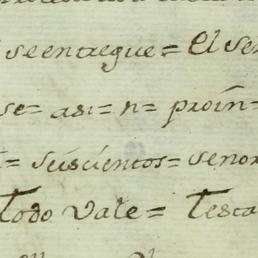 se entregue = El se
se = asi = n = proîn =
= suscientos = senor
Todo Vale = Testa